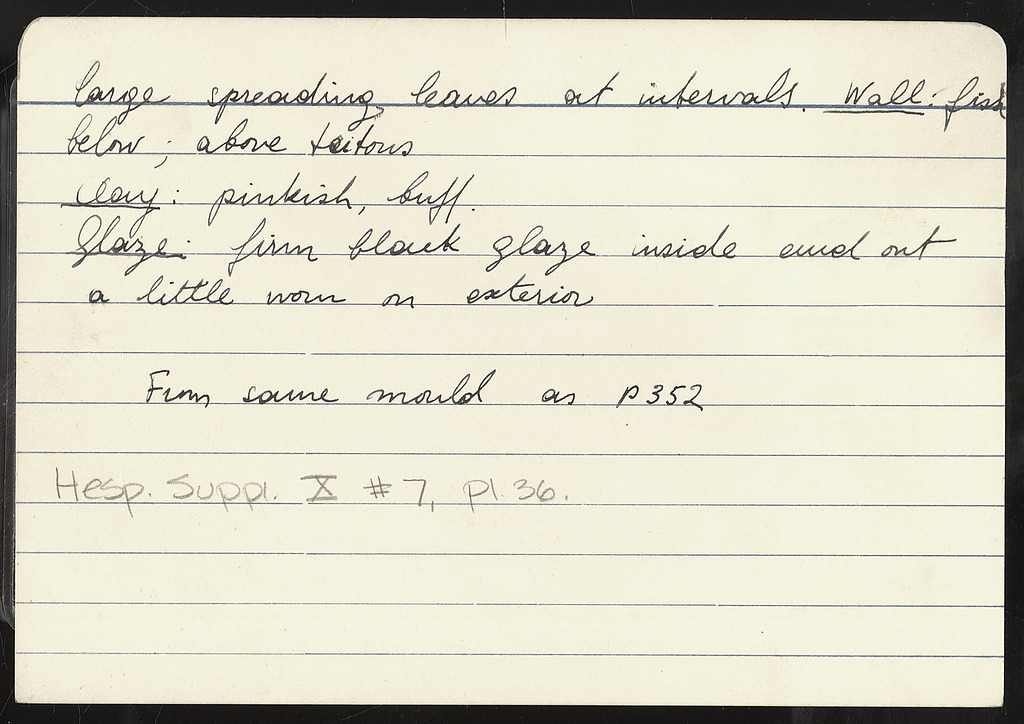 large spreading leaves at intervals. Wall: fish
below; above tritons
Clay: pinkish, buff.
Glaze: firm black glaze inside and out
a little worn on exterior
From same mould as P 352
Hesp. Suppl. X #7, pl. 36.